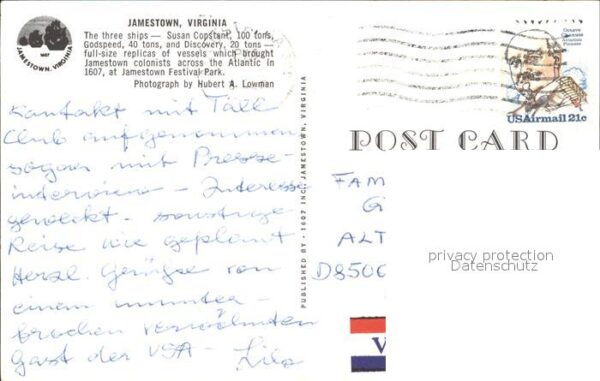 JAMESTOWN, VIRGINIA
The three ships — Susan Constant, 100 tons,
Godspeed, 40 tons, and Discovery, 20 tons —
full-size replicas of vessels which brought
Jamestown colonists across the Atlantic in
1607, at Jamestown Festival Park.
Photograph by Hubert A. Lowman
1607
JAMESTOWN, VIRGINIA
Kontakt mit Tall
Club aufgenommen
sogar mit Presse-
interview - Interesse
geweckt. sonstige
Reise wie geplant
Herzl. Grüße von
einem ununter-
brochen verwöhnten
Gast der USA - Lilo
PUBLISHED BY - 1607 INC., JAMESTOWN, VIRGINIA
Octave
Chanute
Aviation
Pioneer
USAirmail 21c
POST CARD
FAM
G
ALT
D8506
privacy protection
Datenschutz
V